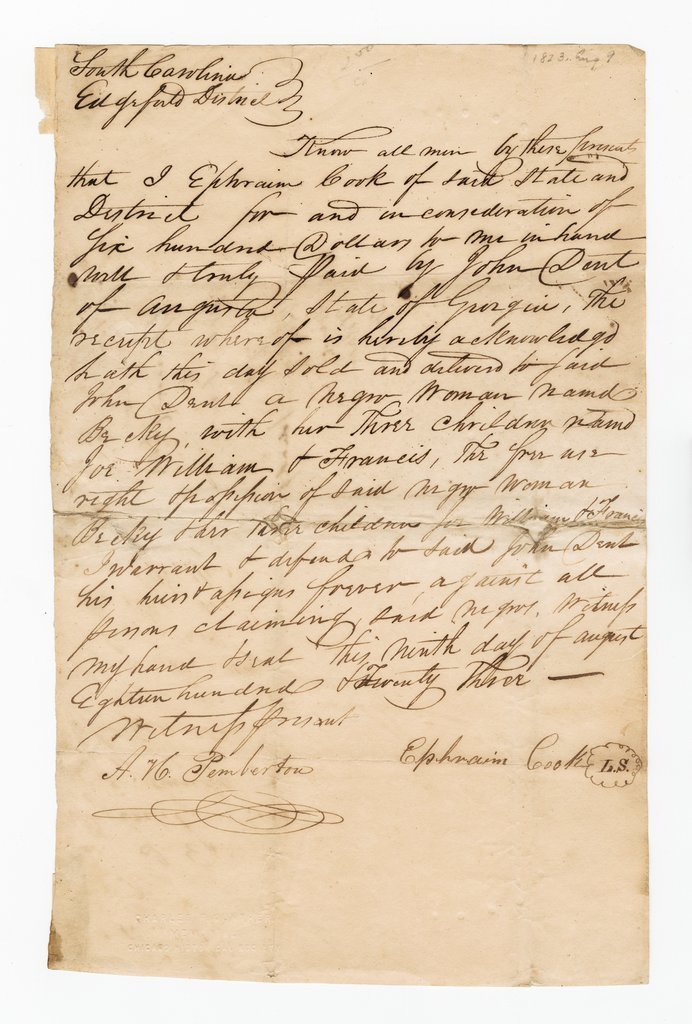 1823. Aug 9
South Carolina
Edgefield District
Know all men by these presents
that I Ephraim Cook of said State and
District for and in consideration of
Six hundred Dollars to me in hand
well & truly Paid by John Dent
of Augusta, State of Georgia, The
receipt whereof is hereby acknowledgd
hath this day Sold and deliverd to said
John Dent a negro Woman namd
Becky, with her Three Children namd
Joe William & Francis, The free use
right & possession of said negro Woman
Becky & her three children Joe William & Francis
I warrant & defend to said John Dent
his heirs & assigns forever, against all
persons claiming said negros. Witness
my hand & seal this ninth day of august
Eighteen hundred & Twenty Three —
Witness present
A. H. Pemberton
Ephraim Cook L.S.